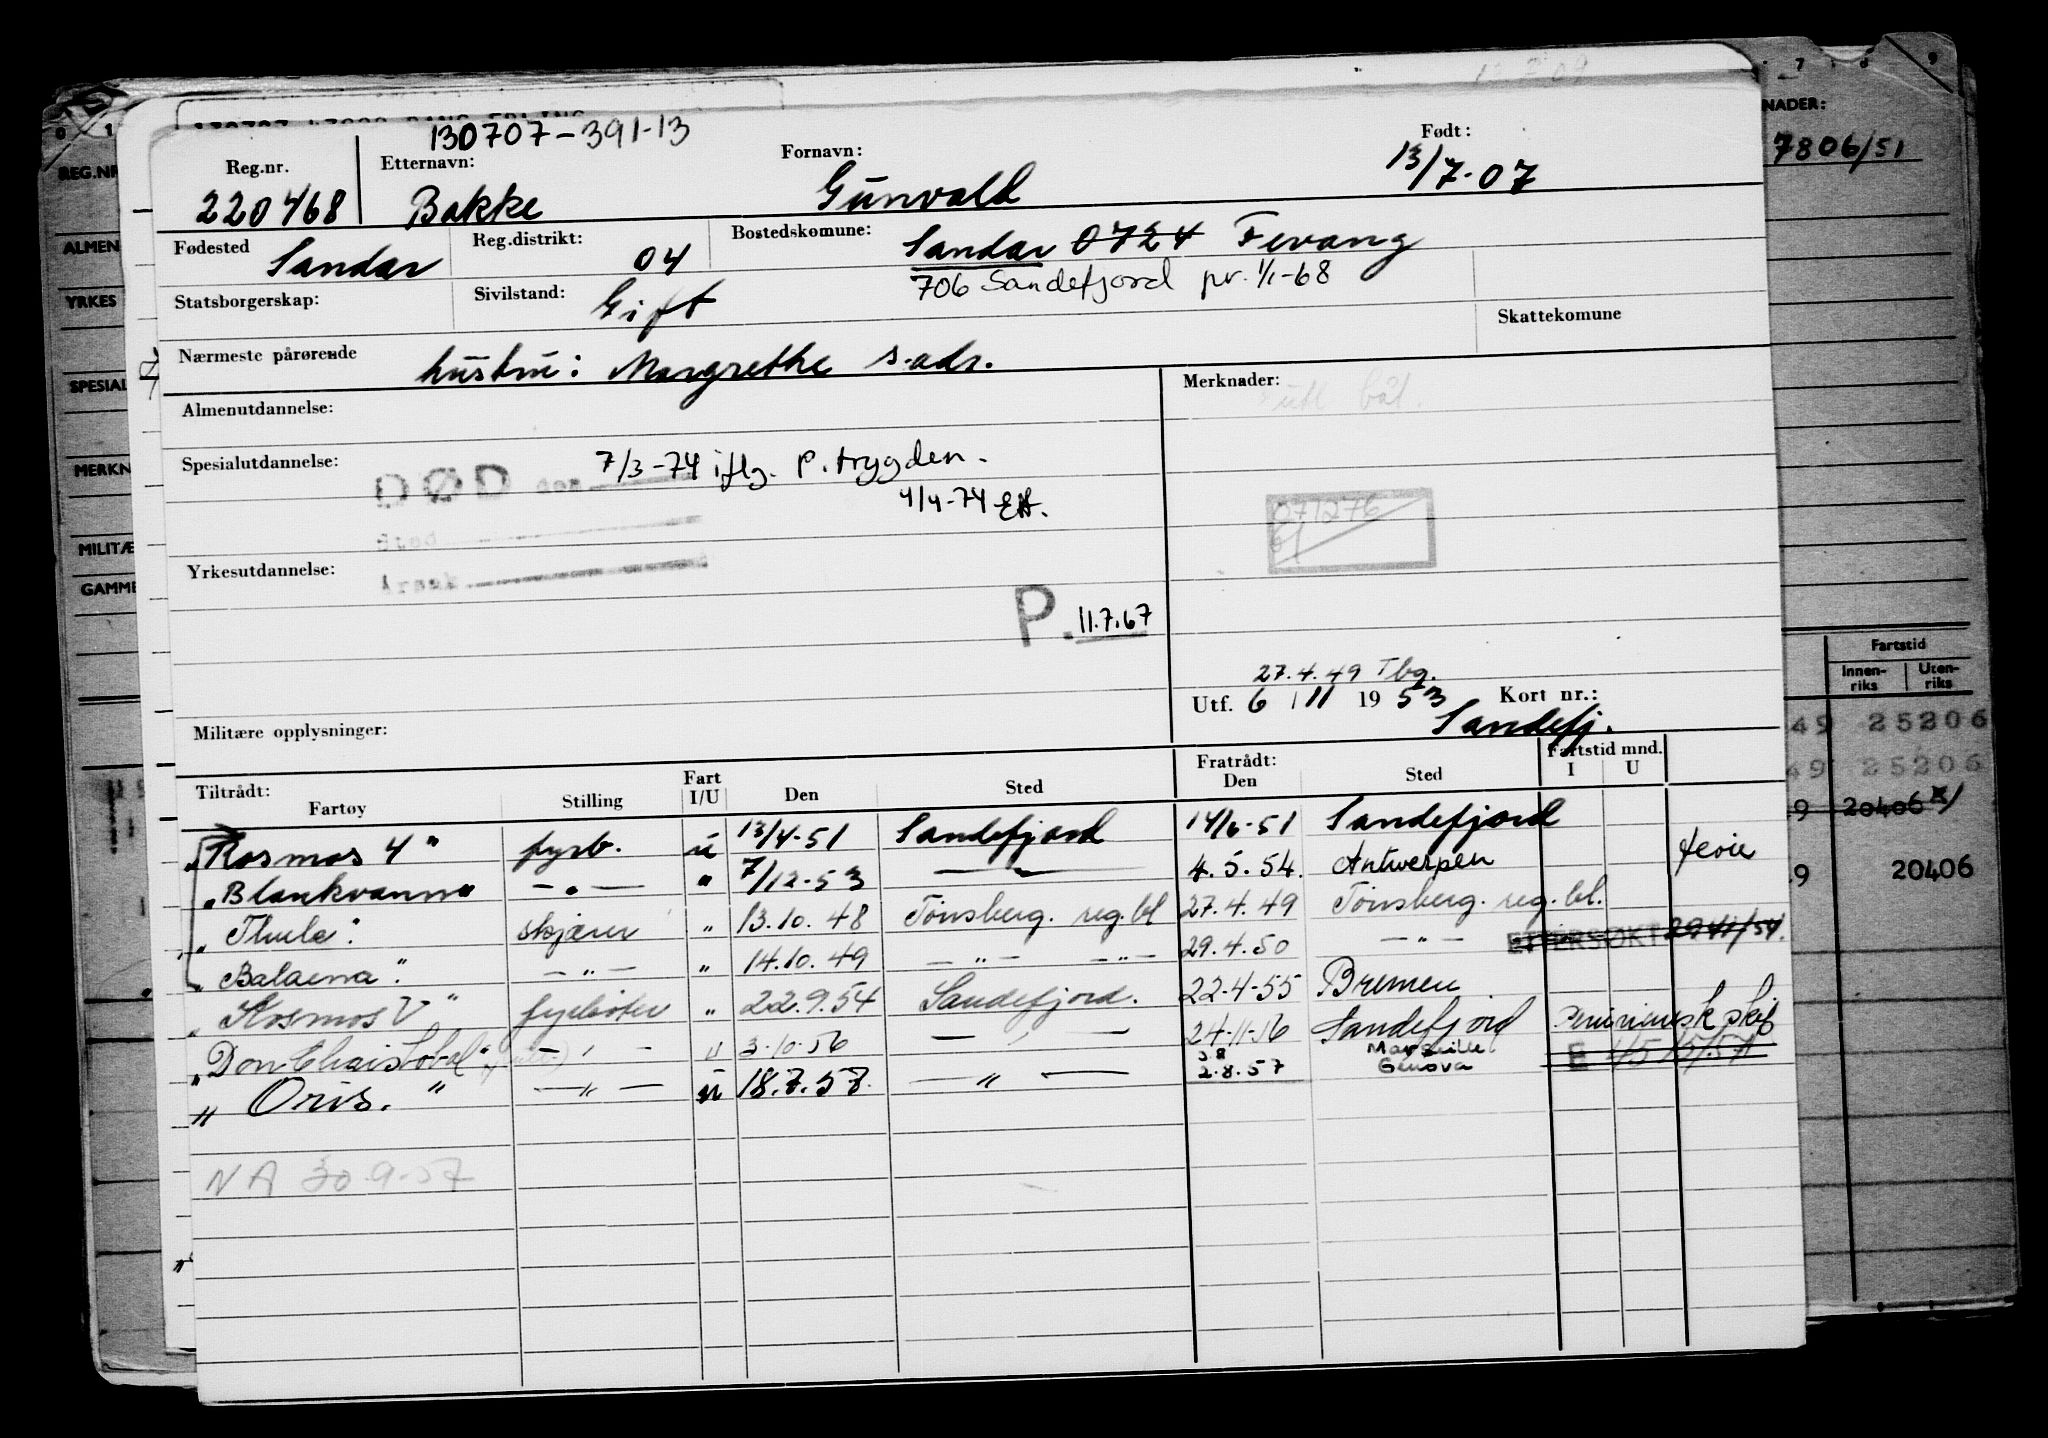 130707-391-13
Reg.nr. Etternavn: Fornavn: Født:
220468 Bakke Gunvald 13/7-07
Fødested Sandar Reg.distrikt: 04 Bostedskomune: Sandar 0724 Fevang
706 Sandefjord pr. 1/1-68
Statsborgerskap: Sivilstand: Gift
Skattekomune
Nærmeste pårørende hustru: Margrethe s.adr.
Almenutdannelse: Merknader: utl båt.
Spesialutdannelse: DØD den 7/3-74 iflg. P. trygden.
4/4-74
Sted
271276
Yrkesutdannelse: Årsak
P. 11.7.67
27.4.49 Tbg.
Utf. 6/11 1953 Kort nr.:
Sandefj.
Militære opplysninger:
Tiltrådt: Fratrådt: Fartstid mnd.
Fartøy Stilling Fart I/U Den Sted Den Sted I U
"Kosmos 4" fyrb. u 13/4-51 Sandefjord 14/6-51 Sandefjord
"Blankvann" -"- " 7/12-53 -"- 4.5.54. Antwerpen ferie
"Thule". skjærer " 13.10.48 Tønsberg. reg.bl 27.4.49 Tønsberg. reg.bl.
"Balaena". -"- " 14.10.49 -"- -"- 29.4.50 -"- ETTERSØKT
"Kosmos V" fyrbøter " 22.9.54 Sandefjord. 22-4-55 Bremen
-"- " 3-10-56 -"- 24-11-56 Sandefjord
"Oris." -"- u 18.7.57. -"- 3.8 Marseille
2.8.57 Genova
NA 30-9-57
REG.NR
ALMEN
YRKES
SPESIAL
MERKN
MILITÆ
GAMME
NADER:
7806/51
Fartstid
Innen-riks Uten-riks
49 25206
49 25206
9 20406 X/
.9 20406